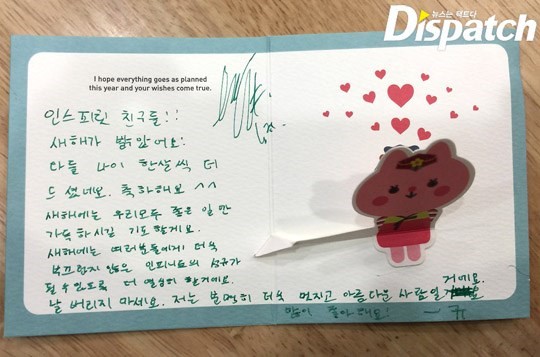 뉴스는 팩트다
Dispatch
I hope everything goes as planned
this year and your wishes come true.
인스피릿 친구들!!
새해가 밝았어요!
다들 나이 한살씩 더
드셨네요. 축하해요 ^^
새해에는 우리모두 좋은 일만
가득하시길 기도할게요.
새해에는 여러분들에게 더욱
부끄럽지 않은 인피니트의 성규가
될 수 있도록 더 열심히 할거예요.
날 버리지 마세요. 저는 분명히 더욱 멋지고 아름다운 사람일 거예요.
많이 좋아해요! -규